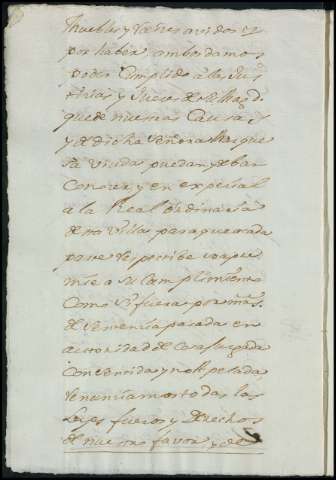 Muebles y raizes avidos y
por haber ambos damos
poder Cumplido a las Jus
ticias y Jueces de S. Mag.d
que de nuestras Causas
y de dicha venera Marques
sa vrvidas puedan y deban
Conocer y en expecial
a la Real ordinaria
de tta villa para que cada
parte respectibe nos apre
mie a su Cumplimiento
Como si fuera por mas
de sentencia pasada en
autoridad de Cosa juzgada
Consentida y no apelada,
renunciamos todas las
Leyes fueros y derechos
de nuestro favor y